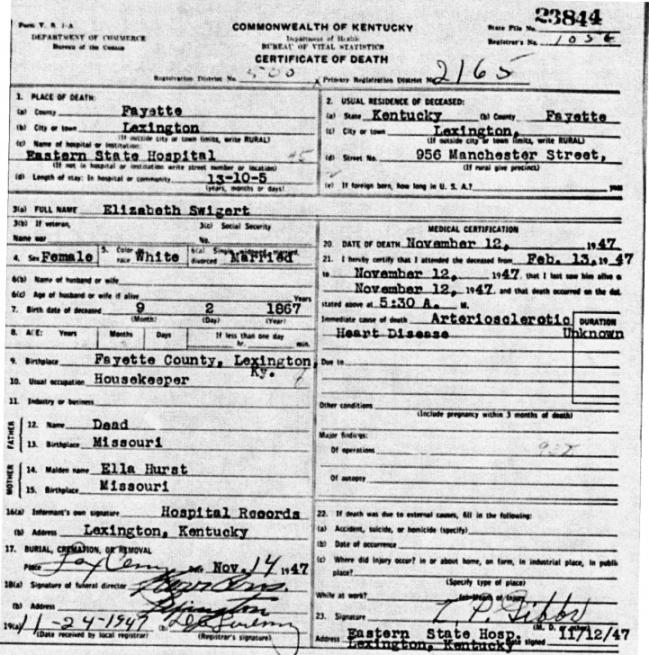 Form V. S. 1-A
DEPARTMENT OF COMMERCE
Bureau of the Census
COMMONWEALTH OF KENTUCKY
Department of Health
BUREAU OF VITAL STATISTICS
CERTIFICATE OF DEATH
State File No. 23844
Registrar's No. 1056
Registration District No. 500 Primary Registration District No. 2165
1. PLACE OF DEATH:
(a) County Fayette
(b) City or town Lexington
(If outside city or town limits, write RURAL)
(c) Name of hospital or institution:
Eastern State Hospital
(If not in hospital or institution write street number or location)
(d) Length of stay: In hospital or community 13-10-5
(years, months or days)
2. USUAL RESIDENCE OF DECEASED:
(a) State Kentucky (b) County Fayette
(c) City or town Lexington,
(If outside city or town limits, write RURAL)
(d) Street No. 956 Manchester Street,
(If rural give precinct)
(e) If foreign born, how long in U. S. A.? years
3(a) FULL NAME Elizabeth Swigert
3(b) If veteran, 3(c) Social Security
Name war No.
4. Sex Female 5. Color or race White 6(a) Single, widowed, married, divorced Married
6(b) Name of husband or wife
6(c) Age of husband or wife if alive Years
7. Birth date of deceased 9 2 1867
(Month) (Day) (Year)
8. AGE: Years Months Days If less than one day
hr. min.
9. Birthplace Fayette County, Lexington, Ky.
10. Usual occupation Housekeeper
11. Industry or business
FATHER
12. Name Dead
13. Birthplace Missouri
MOTHER
14. Maiden name Ella Hurst
15. Birthplace Missouri
16(a) Informant's own signature Hospital Records
(b) Address Lexington, Kentucky
17. BURIAL, CREMATION, OR REMOVAL
Place Lex Cem Date Nov. 14 1947
18(a) Signature of funeral director
(b) Address Lexington
19(a) 11-24-1947 (b)
(Date received by local registrar) (Registrar's signature)
MEDICAL CERTIFICATION
20. DATE OF DEATH November 12, 1947
21. I hereby certify that I attended the deceased from Feb. 13, 1947
to November 12, 1947, that I last saw him alive o
November 12, 1947, and that death occurred on the dat
stated above at 5:30 A. M.
Immediate cause of death Arteriosclerotic
DURATION
Heart Disease Unknown
Due to
Other conditions
(Include pregnancy within 3 months of death)
Major findings:
Of operations
Of autopsy
22. If death was due to external causes, fill in the following:
(a) Accident, suicide, or homicide (specify)
(b) Date of occurrence
(c) Where did injury occur? in or about home, on farm, in industrial place, in public
place?
(Specify type of place)
While at work?
23. Signature L. P. Gibbs
(M. D. or other)
Address Eastern State Hosp. Date signed 11/12/47
Lexington, Kentucky